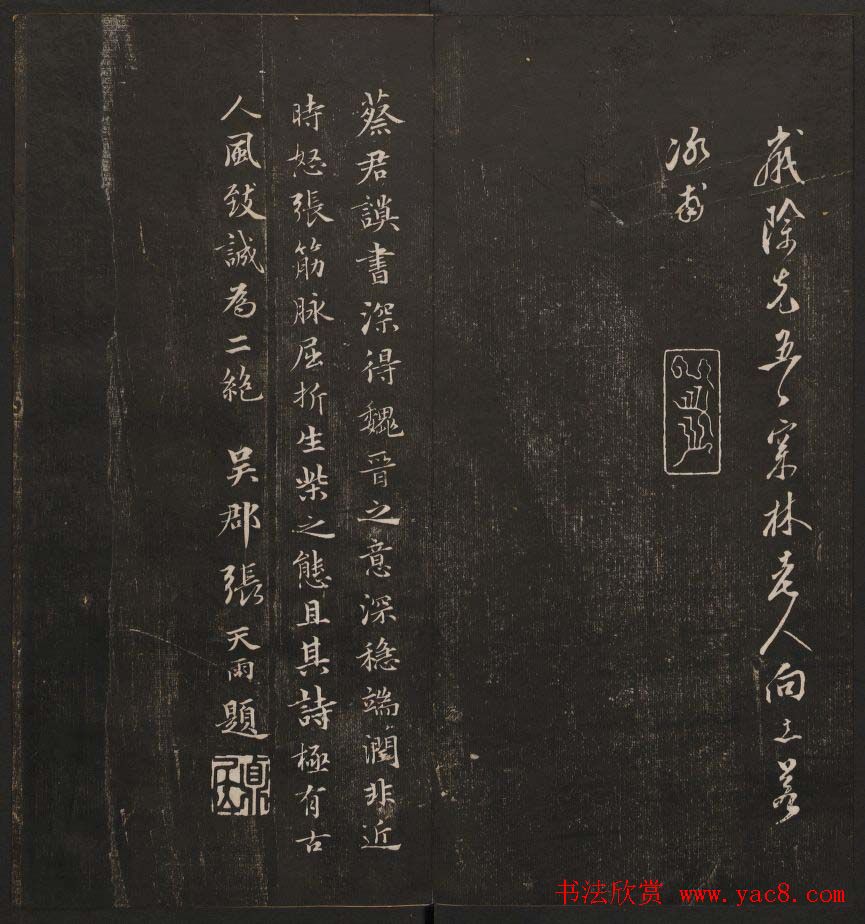 歲除先五林老人向若
冰甫
蔡君謨書深得魏晉之意深穩端潤非近
時怒張筋脉屈折生柴之態且其詩極有古
人風致誠為二絕 吳郡張天雨題
书法欣赏 www.yac8.com